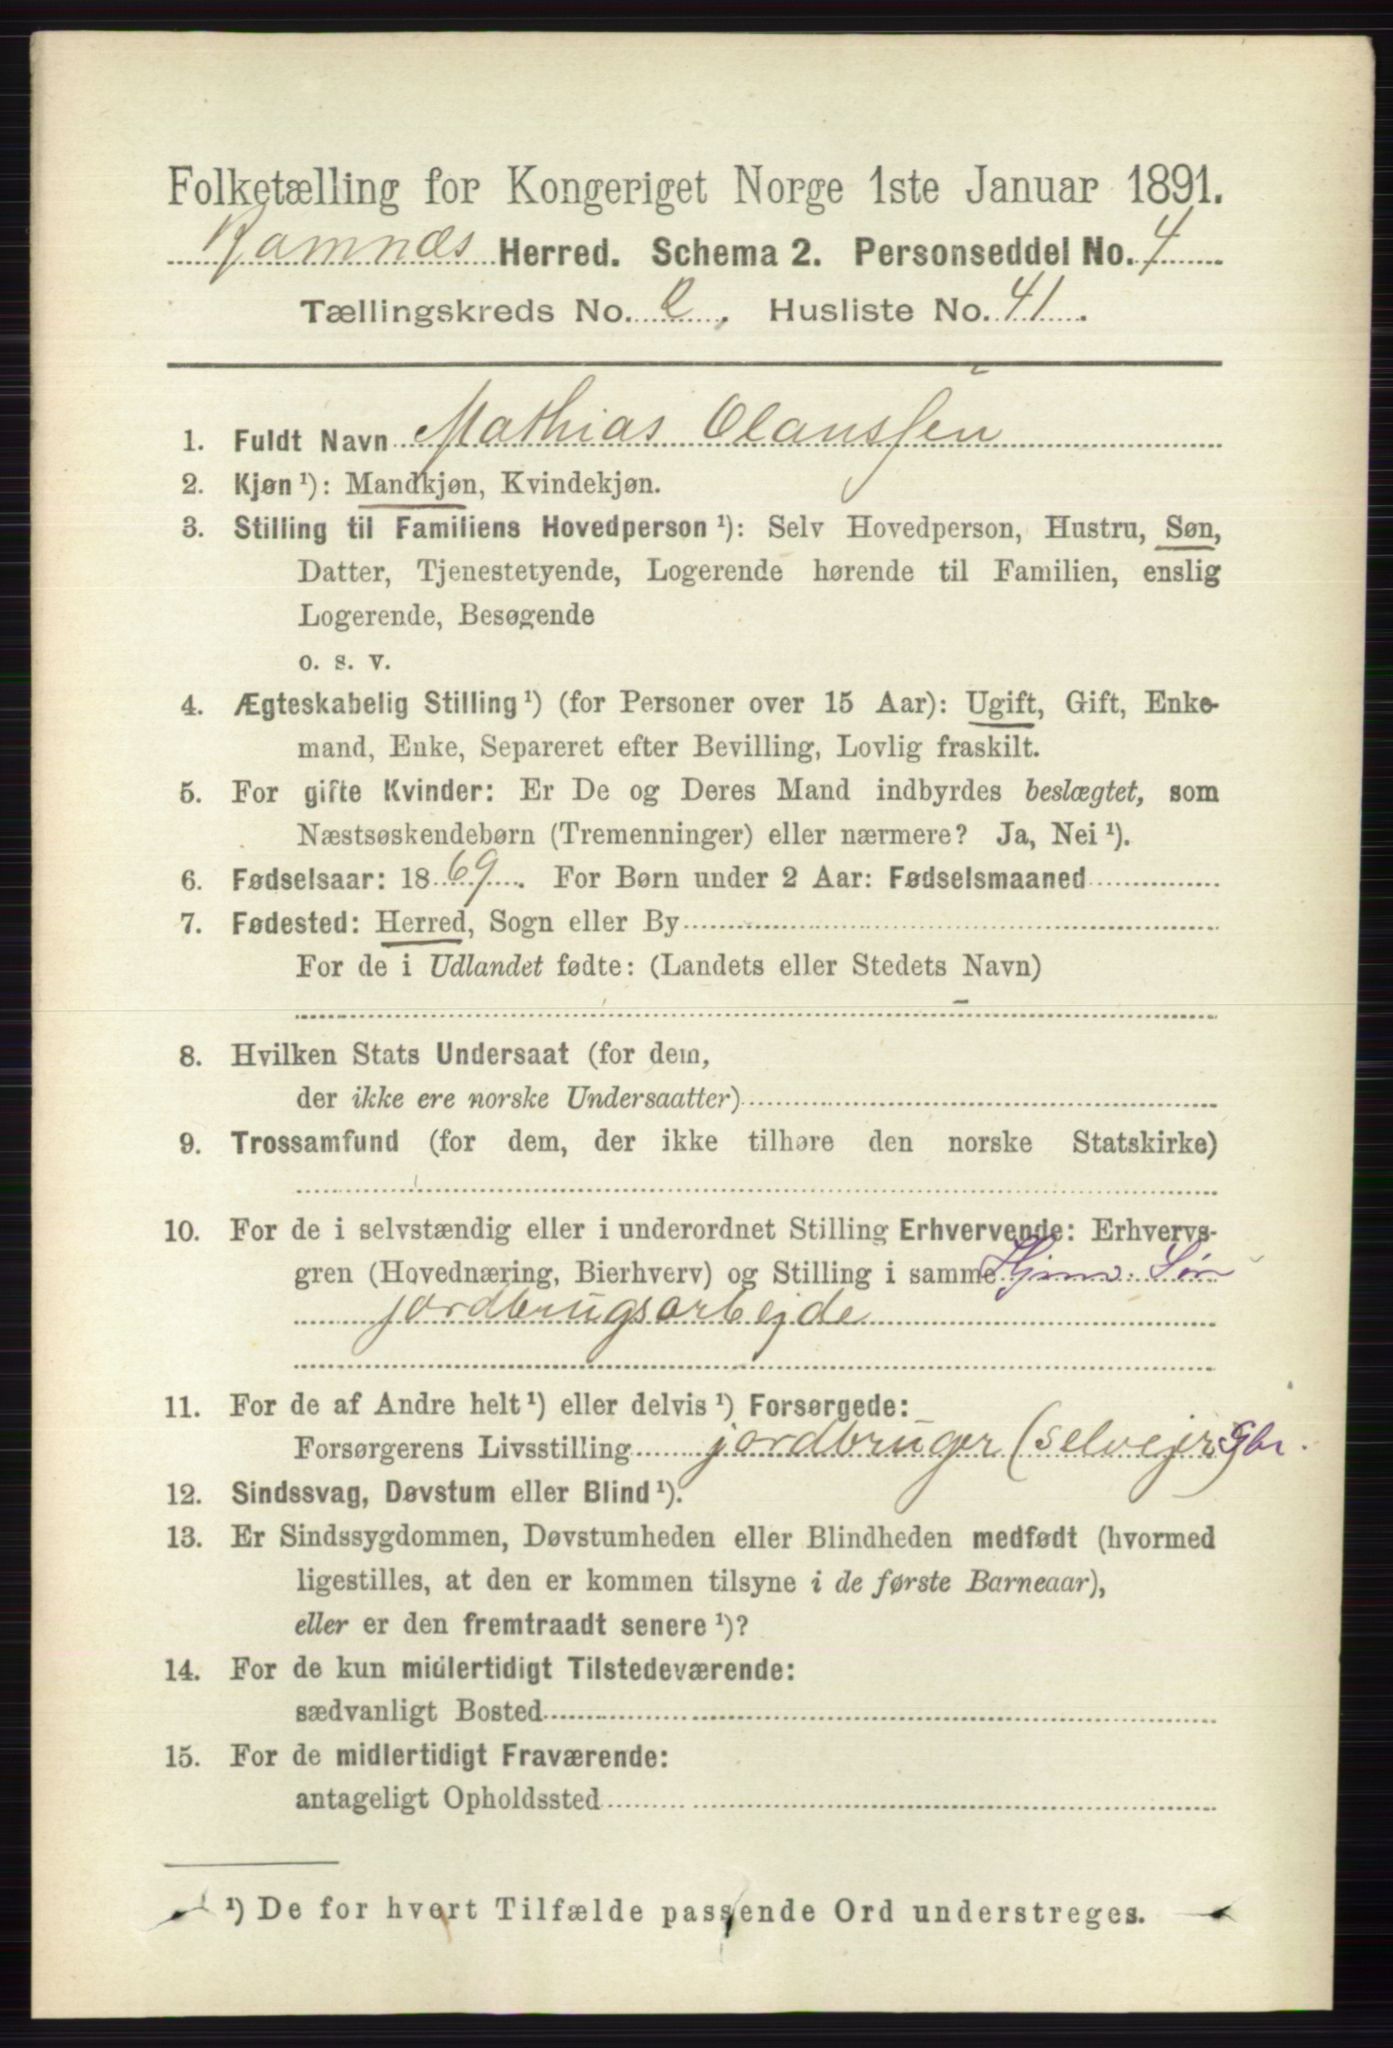 Folketælling for Kongeriget Norge 1ste Januar 1891.
Ramnæs Herred. Schema 2. Personseddel No. 4
Tællingskreds No. 2. Husliste No. 41.
1. Fuldt Navn Mathias Olaussen
2. Kjøn ¹): Mandkjøn, Kvindekjøn.
3. Stilling til Familiens Hovedperson ¹): Selv Hovedperson, Hustru, Søn,
Datter, Tjenestetyende, Logerende hørende til Familien, enslig
Logerende, Besøgende
o. s. v.
4. Ægteskabelig Stilling ¹) (for Personer over 15 Aar): Ugift, Gift, Enke-
mand, Enke, Separeret efter Bevilling, Lovlig fraskilt.
5. For gifte Kvinder: Er De og Deres Mand indbyrdes beslægtet, som
Næstsøskendebørn (Tremenninger) eller nærmere? Ja, Nei ¹).
6. Fødselsaar: 1869. For Børn under 2 Aar: Fødselsmaaned
7. Fødested: Herred, Sogn eller By
For de i Udlandet fødte: (Landets eller Stedets Navn)
8. Hvilken Stats Undersaat (for dem,
der ikke ere norske Undersaatter)
9. Trossamfund (for dem, der ikke tilhøre den norske Statskirke)
10. For de i selvstændig eller i underordnet Stilling Erhvervende: Erhvervs-
gren (Hovednæring, Bierhverv) og Stilling i samme Hjmv. Søn
jordbrugsarbejde
11. For de af Andre helt ¹) eller delvis ¹) Forsørgede:
Forsørgerens Livsstilling jordbruger (selvejer gbr.
12. Sindssvag, Døvstum eller Blind ¹).
13. Er Sindssygdommen, Døvstumheden eller Blindheden medfødt (hvormed
ligestilles, at den er kommen tilsyne i de første Barneaar),
eller er den fremtraadt senere ¹)?
14. For de kun midlertidigt Tilstedeværende:
sædvanligt Bosted
15. For de midlertidigt Fraværende:
antageligt Opholdssted
¹) De for hvert Tilfælde passende Ord understreges.